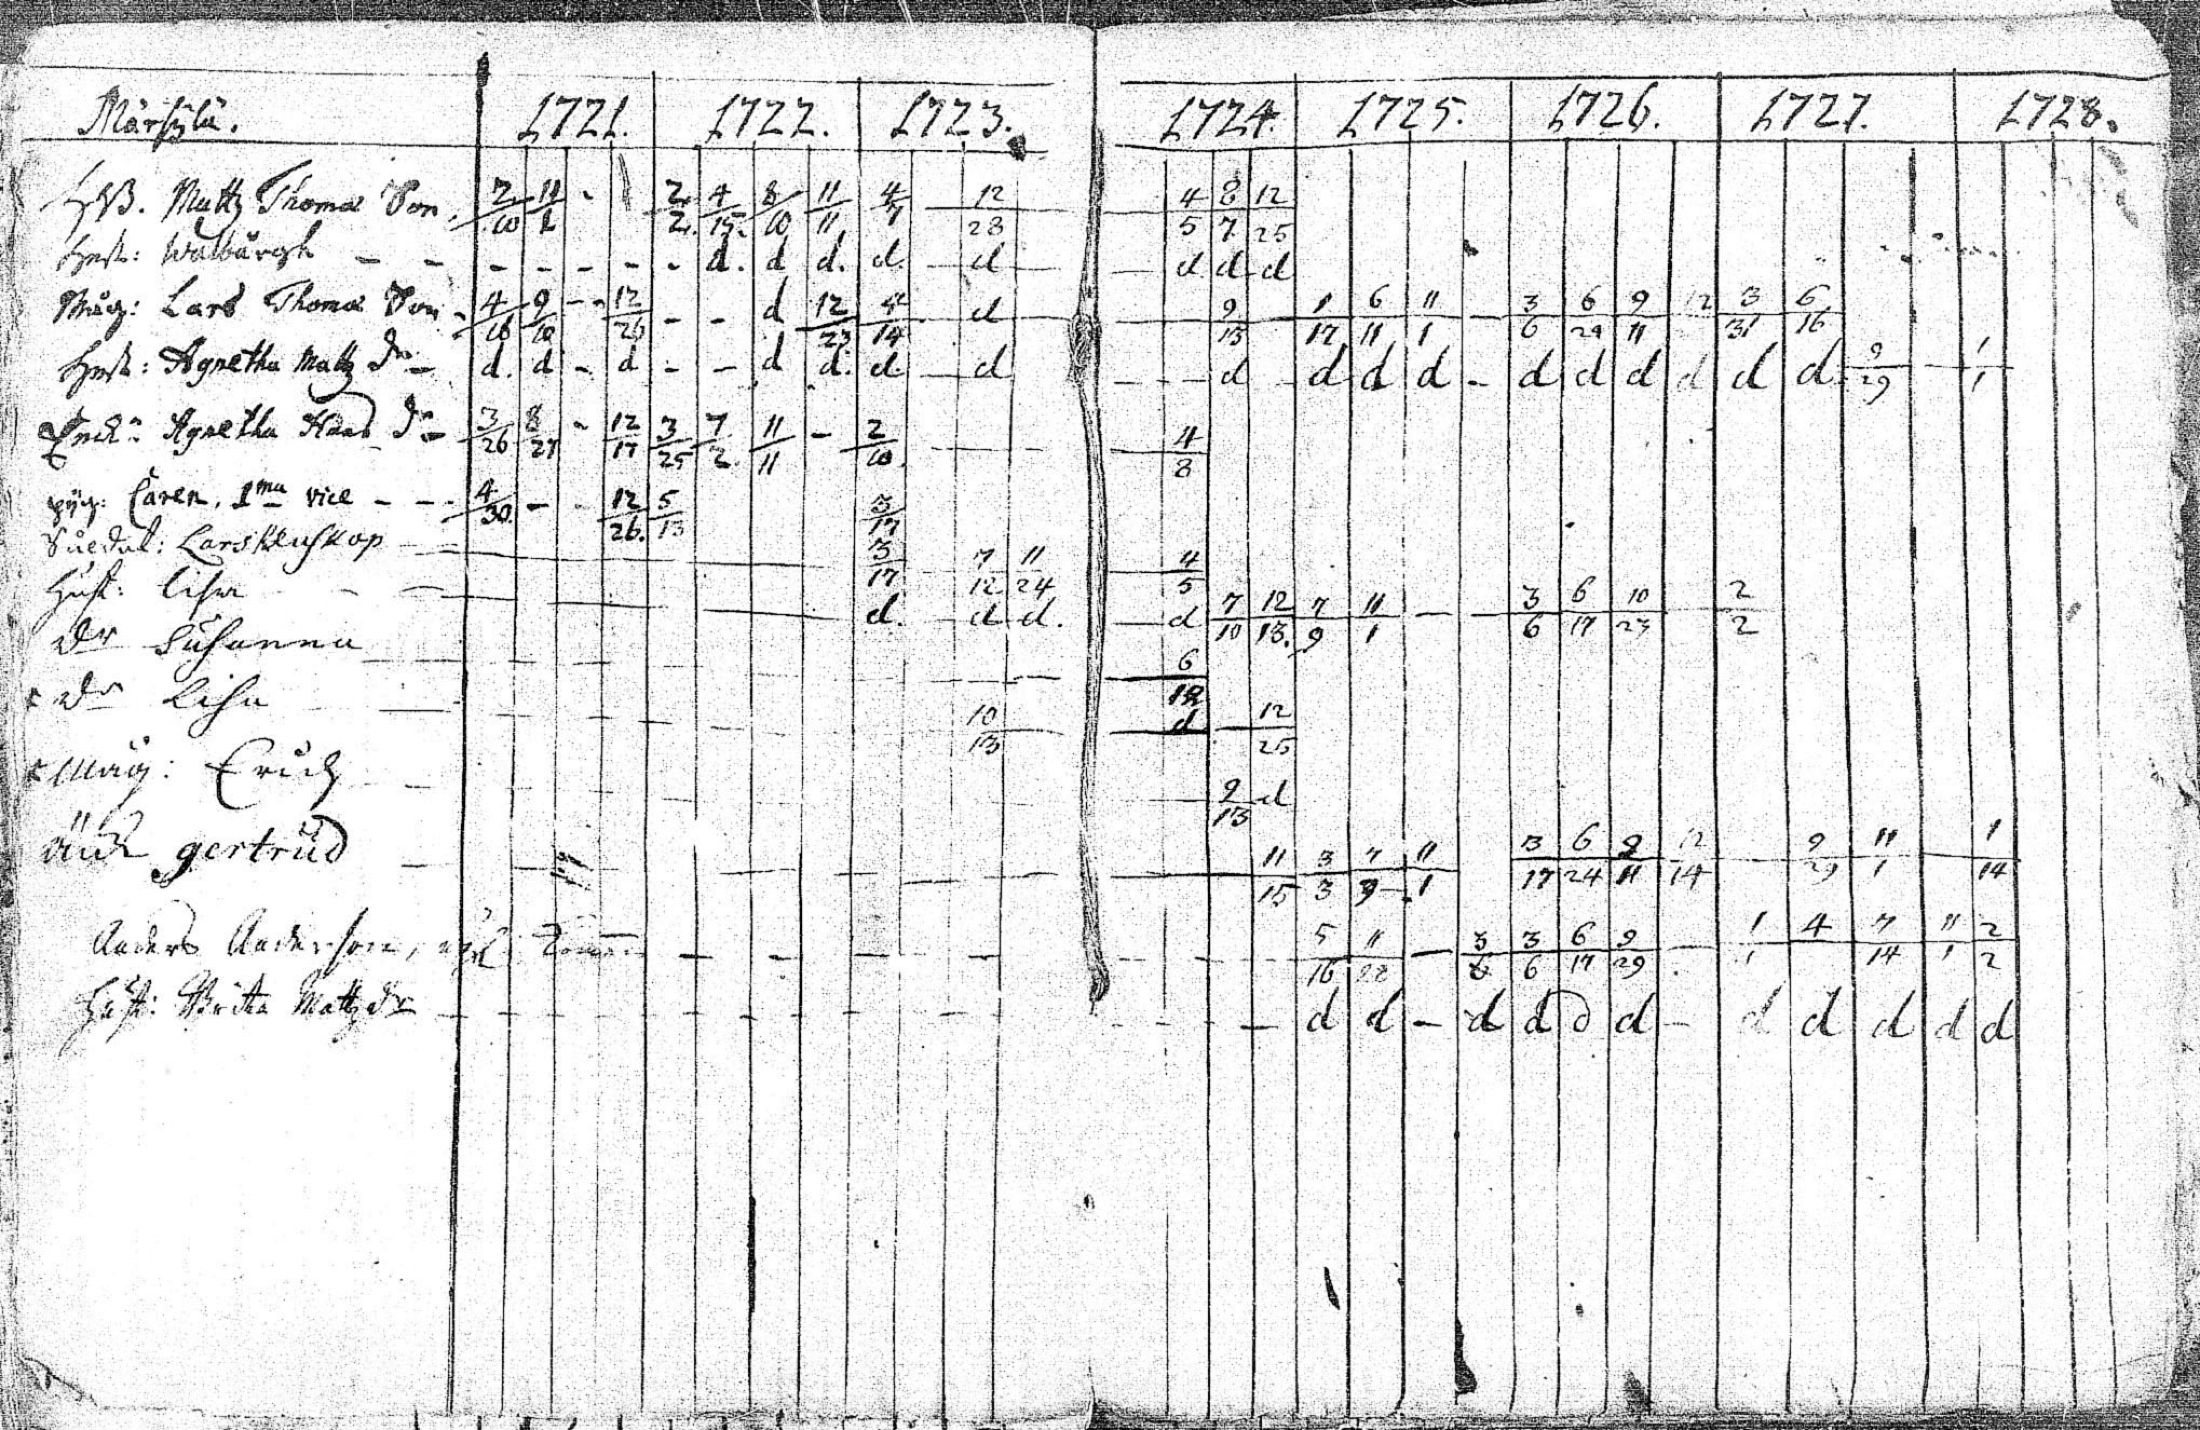 Märkylä. 1721. 1722. 1723. 1724. 1725. 1726. 1727. 1728.
HB. Mattz Thomæ Son. 2/10 11/2 - 2/2. 4/15. 8/10 11/11 4/7 12/28 4/5 8/7 12/25
Hust: Walbårgh - - - - - - - - d. d d. d. d d d d
Måg: Lars Thomæ Son - 4/16 9/10 - - 12/26 - - d 12/23 4/14 d 9/13 1/17 6/11 11/1 3/6 6/29 9/11 12 3/31 6/16
Hust: Agnetha Mattz dr - d. d - d - - d d. d. d d d d d - d d d d d d 9/29 1/1
Enck: Agnetha Hans dr 3/26 8/27 - 12/17 3/25 7/2. 11/11 - 2/10. 4/8
pig: Caren. 1ma vice - - 4/30. - - 12/26. 5/13 3/17
Suedat: Lars 3/17 7/12 11/24 4/5
Hust: Lisa d. d d. d 7/10 12/13. 7/9 11/1 - 3/6 6/17 10/23 2/2
Dr Susanna 6/12
Dr Lisa 10/13 d 12/25
Måg: Erich 9/13 d
gertrud 11/15 3/3 7/9 11/1 3/17 6/24 9/11 12/14 9/29 11/1 1/14
Anders Anderson, 5/16 11/28 - 3/6 3/6 6/17 9/29 1/1 4 7/14 11/1 2/2
Hust: Brita Mattz dr d d - d d d d - d d d d d